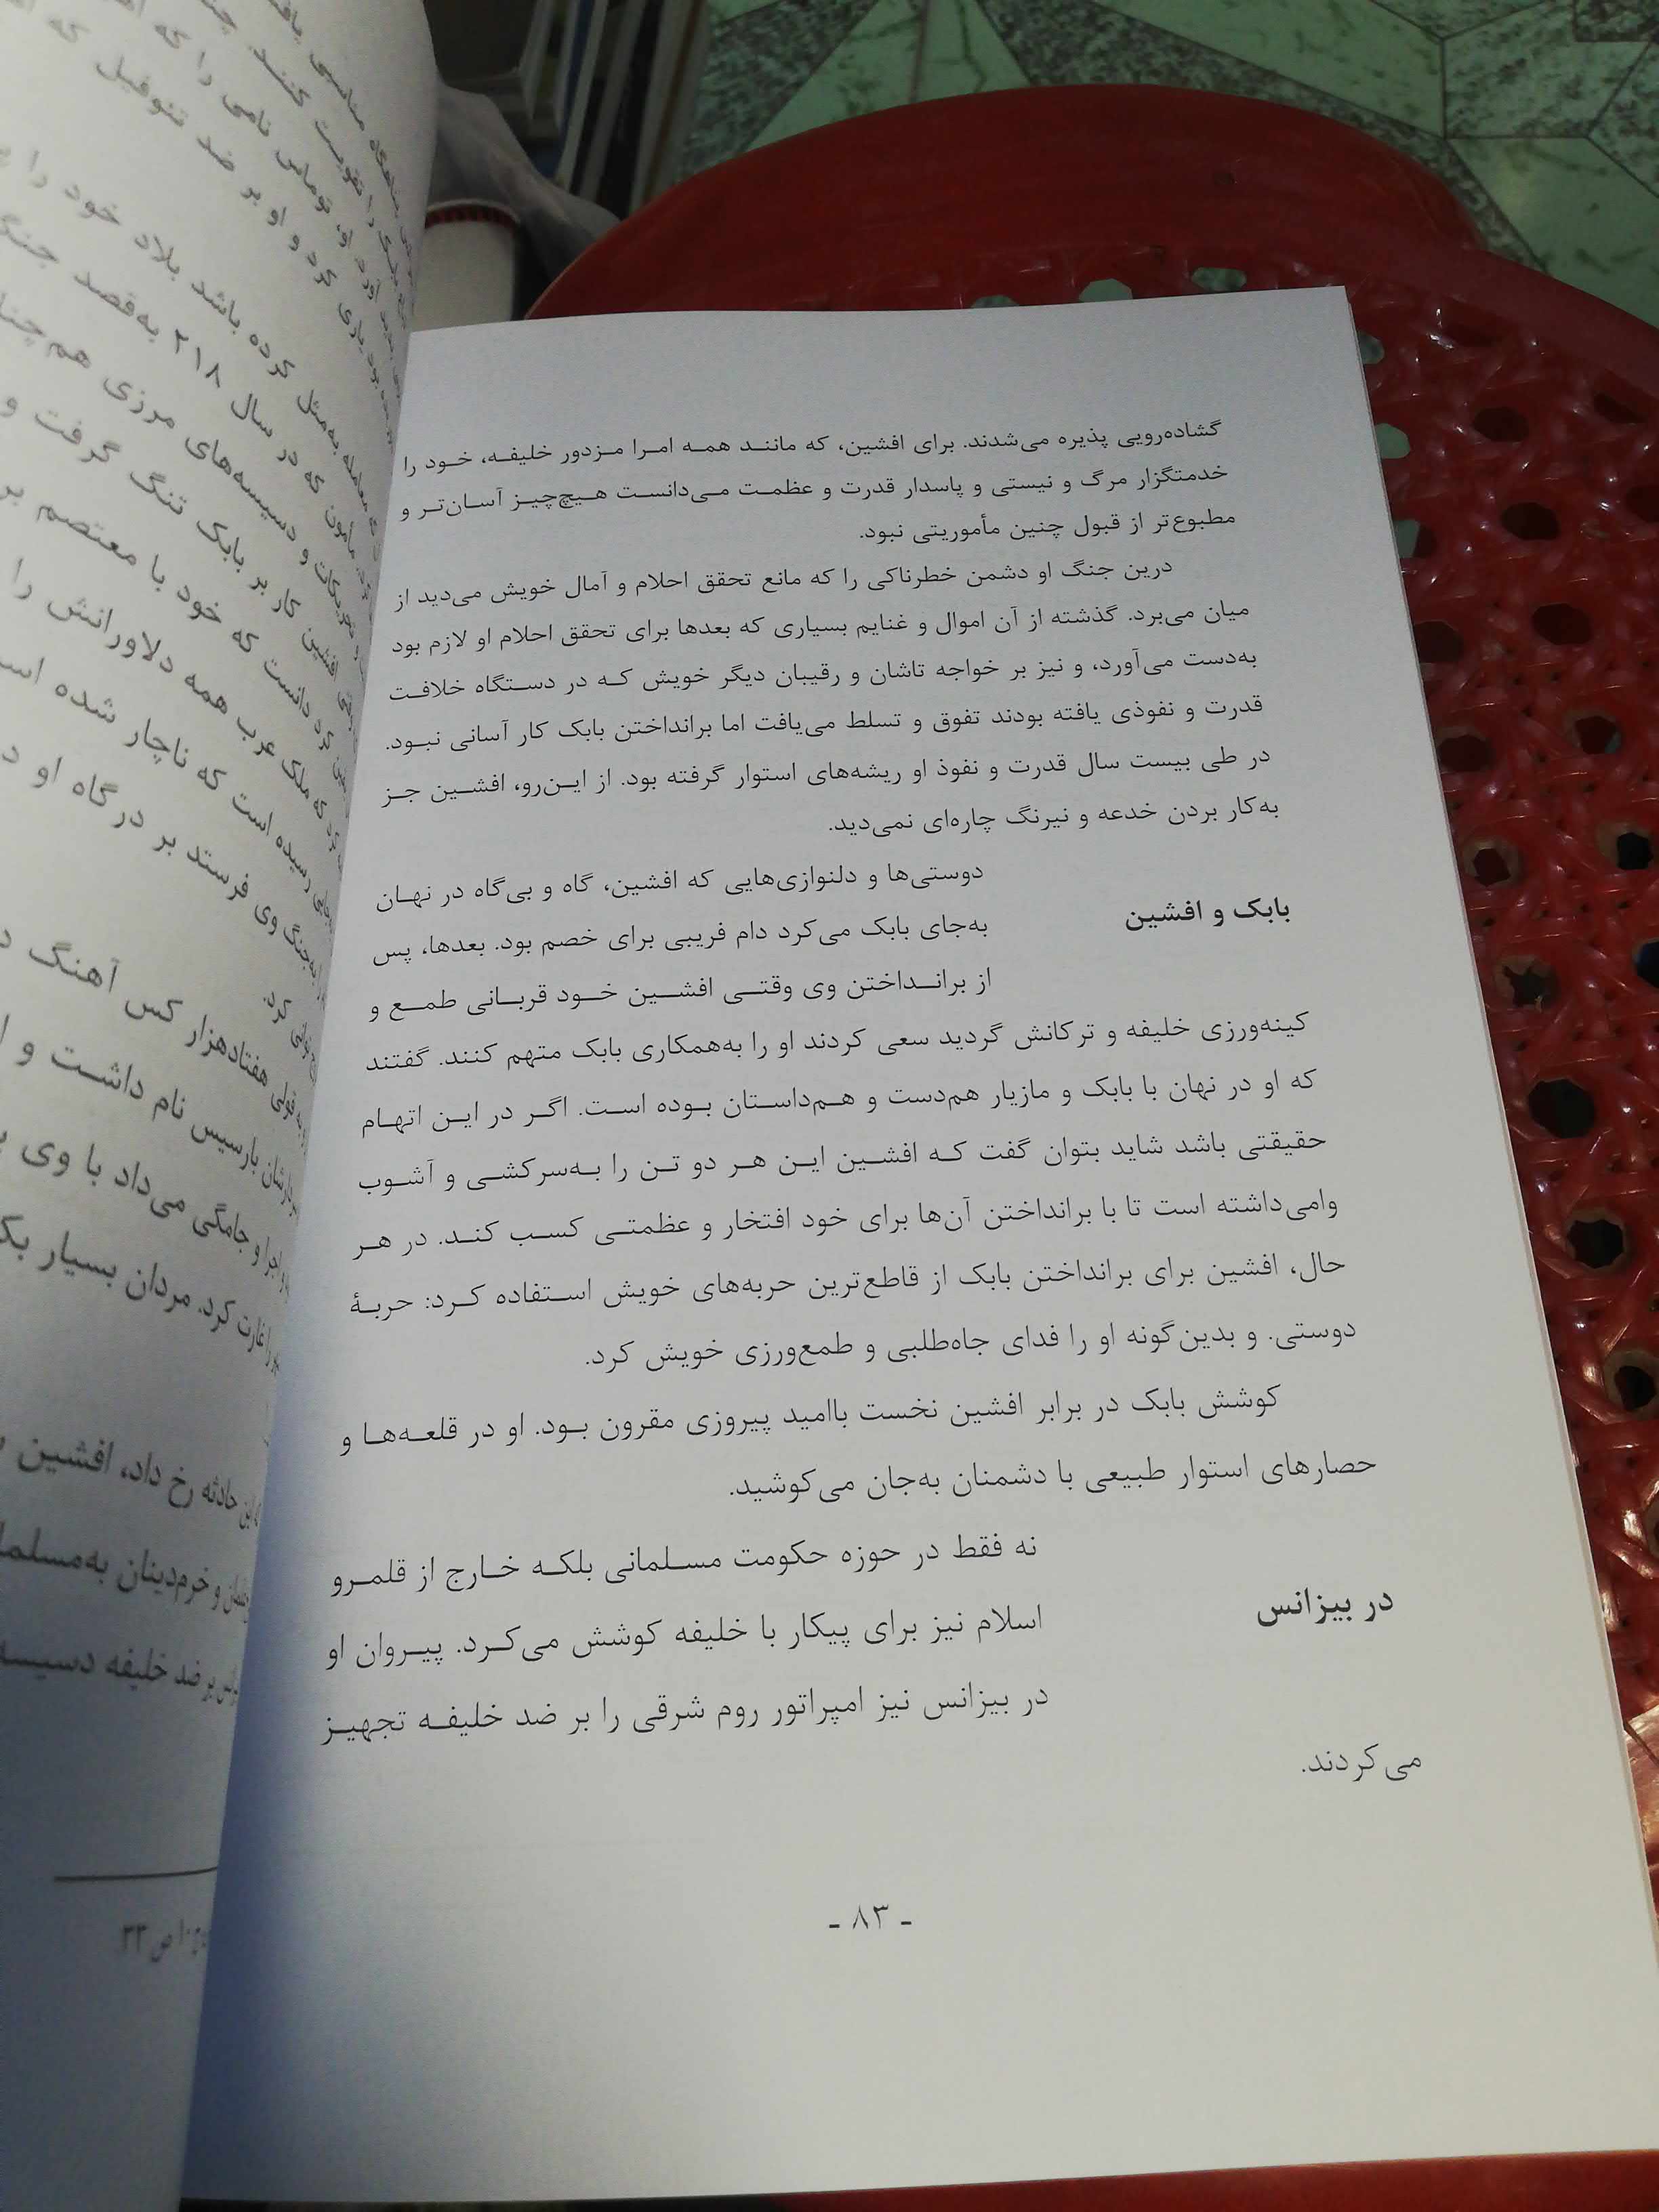 گشاده‌رویی پذیره می‌شدند. برای افشین، که مانند همه امرا مزدور خلیفه، خود را
خدمتگزار مرگ و نیستی و پاسدار قدرت و عظمت می‌دانست هیچ‌چیز آسان‌تر و
مطبوع‌تر از قبول چنین مأموریتی نبود.
درین جنگ او دشمن خطرناکی را که مانع تحقق احلام و آمال خویش می‌دید از
میان می‌برد. گذشته از آن اموال و غنایم بسیاری که بعدها برای تحقق احلام او لازم بود
به‌دست می‌آورد، و نیز بر خواجه تاشان و رقیبان دیگر خویش که در دستگاه خلافت
قدرت و نفوذی یافته بودند تفوق و تسلط می‌یافت اما برانداختن بابک کار آسانی نبود.
در طی بیست سال قدرت و نفوذ او ریشه‌های استوار گرفته بود. از این‌رو، افشین جز
به‌کار بردن خدعه و نیرنگ چاره‌ای نمی‌دید.
بابک و افشین
دوستی‌ها و دلنوازی‌هایی که افشین، گاه و بی‌گاه در نهان
به‌جای بابک می‌کرد دام فریبی برای خصم بود. بعدها، پس
از برانداختن وی وقتی افشین خود قربانی طمع و
کینه‌ورزی خلیفه و ترکانش گردید سعی کردند او را به‌همکاری بابک متهم کنند. گفتند
که او در نهان با بابک و مازیار هم‌دست و هم‌داستان بوده است. اگر در این اتهام
حقیقتی باشد شاید بتوان گفت که افشین این هر دو تن را به‌سرکشی و آشوب
وامی‌داشته است تا با برانداختن آن‌ها برای خود افتخار و عظمتی کسب کند. در هر
حال، افشین برای برانداختن بابک از قاطع‌ترین حربه‌های خویش استفاده کرد: حربهٔ
دوستی. و بدین‌گونه او را فدای جاه‌طلبی و طمع‌ورزی خویش کرد.
کوشش بابک در برابر افشین نخست باامید پیروزی مقرون بود. او در قلعه‌ها و
حصارهای استوار طبیعی با دشمنان به‌جان می‌کوشید.
در بیزانس
نه فقط در حوزه حکومت مسلمانی بلکه خارج از قلمرو
اسلام نیز برای پیکار با خلیفه کوشش می‌کرد. پیروان او
در بیزانس نیز امپراتور روم شرقی را بر ضد خلیفه تجهیز
می‌کردند.
- ۸۳ -
نامی را که
کرد و او بر ضد تئوفیل که
کرده باشد بلاد خود را
که در سال ۲۱۸ به‌قصد جنگ
و دسیسه‌های مرزی
افشین کار بر بابک تنگ گرفت و
دانست که خود با معتصم بر
که ملک عرب همه دلاورانش را
رسیده است که ناچار شده
وی فرستد بر درگاه او
قولی هفتادهزار کس آهنگ
بارسیس نام داشت و
و جامگی می‌داد با وی
غارت کرد. مردان بسیار
حادثه رخ داد، افشین
و خرم‌دینان
بر ضد خلیفه
ص ۳۳